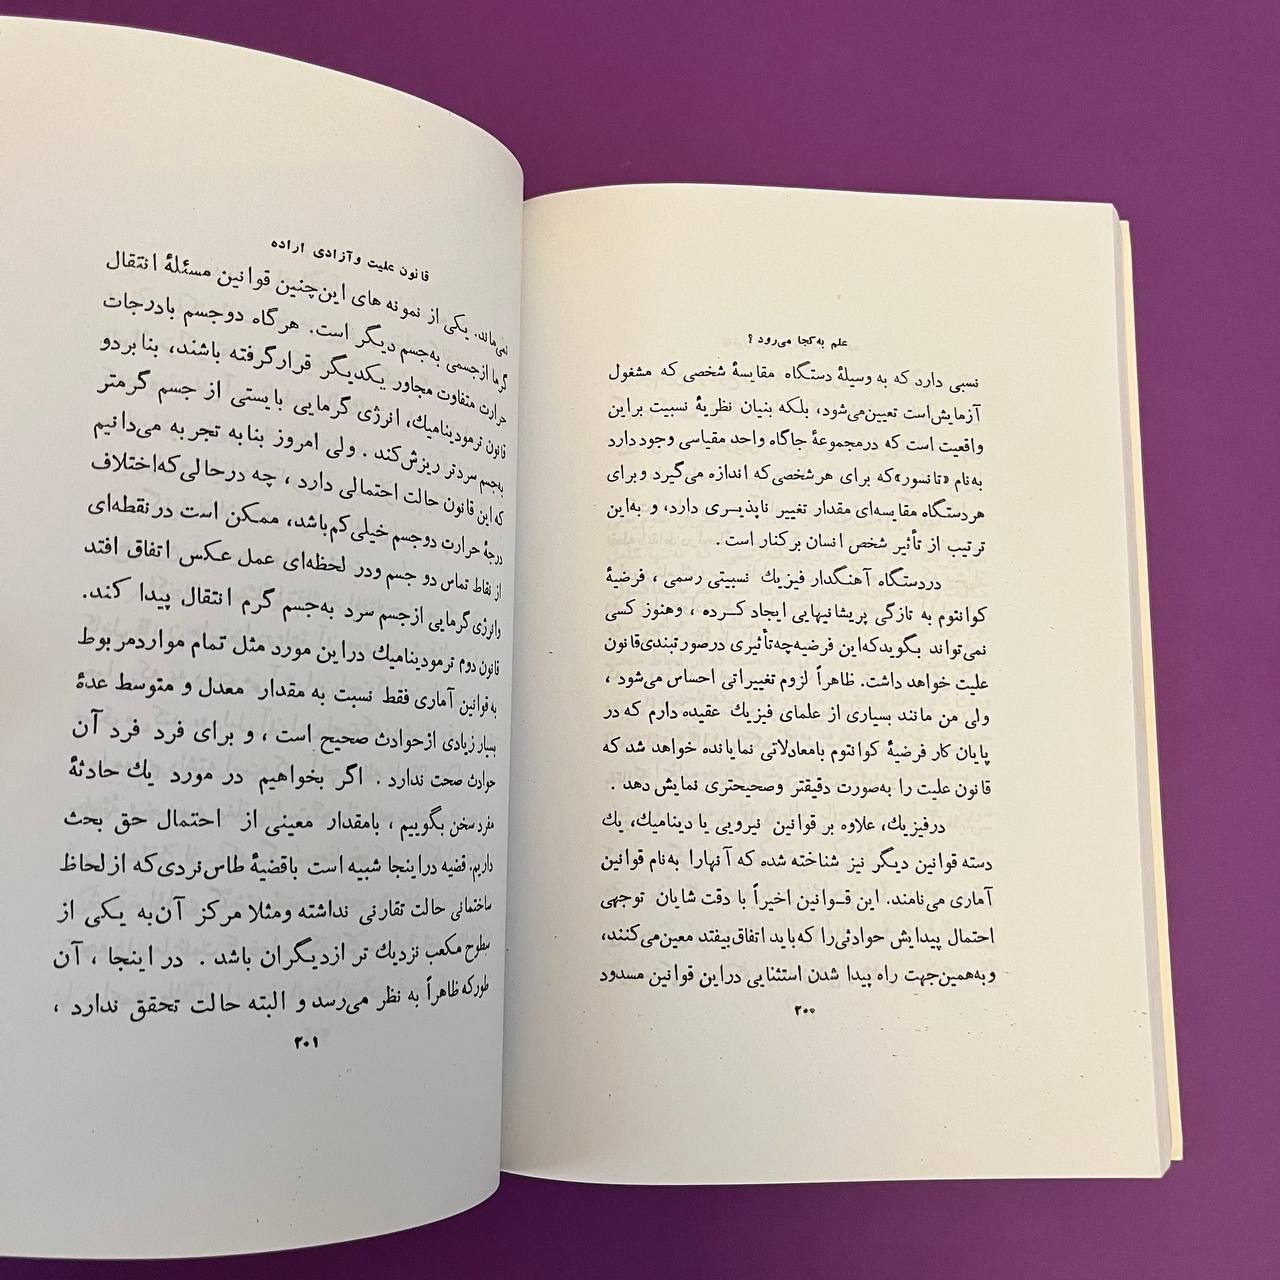 علم به‌کجا می‌رود ؟
نسبی دارد که به وسیلهٔ دستگاه مقایسهٔ شخصی که مشغول
آزمایش‌است تعیین‌می‌شود، بلکه بنیان نظریهٔ نسبیت براین
واقعیت است که درمجموعهٔ جاگاه واحد مقیاسی وجود دارد
به‌نام «تانسور»که برای هرشخصی‌که اندازه می‌گیرد وبرای
هردستگاه مقایسه‌ای مقدار تغییر ناپذیـری دارد، و به‌این
ترتیب از تأثیر شخص انسان برکنار است .
دردستگاه آهنگدار فیزیك نسبیتی رسمی ، فرضیهٔ
کوانتوم به تازگی پریشانیهایی ایجاد کـرده ، وهنوز کسی
نمی‌تواند بگویدکه‌این فرضیه‌چه‌تأثیری درصورتبندی‌قانون
علیت خواهد داشت. ظاهراً لزوم تغییراتی احساس می‌شود ،
ولی من مانند بسیاری از علمای فیزیك عقیده دارم که در
پایان کار فرضیهٔ کوانتوم بامعادلاتی نمایانده خواهد شد که
قانون علیت را به‌صورت دقیقتر وصحیحتری نمایش دهد .
درفیزیك، علاوه بر قوانین نیرویی یا دینامیك، یك
دسته قوانین دیگر نیز شناخته شده که آنهارا به‌نام قوانین
آماری می‌نامند. این قـوانین اخیراً با دقت شایان توجهی
احتمال پیدایش حوادثی‌را که‌باید اتفاق‌بیفتد معین‌می‌کنند،
وبه‌همین‌جهت راه پیدا شدن استثنایی دراین قوانین مسدود
۲۰۰
قانون علیت وآزادی اراده
نمی‌ماند. یکی از نمونه های این‌چنین قوانین مسئلهٔ انتقال
گرما ازجسمی به‌جسم دیگر است. هرگاه دوجسم بادرجات
حرارت متفاوت مجاور یکدیگر قرارگرفته باشند، بنابردو
قانون ترمودینامیك، انرژی گرمایی بایستی از جسم گرمتر
به‌جسم سردتر ریزش‌کند . ولی امروز بنابه تجربه می‌دانیم
که این قانون حالت احتمالی دارد ، چه درحالی‌که‌اختلاف
درجهٔ حرارت دوجسم خیلی‌کم‌باشد، ممکن است درنقطه‌ای
از نقاط تماس دو جسم ودر لحظه‌ای عمل عکس اتفاق افتد
وانرژی‌گرمایی ازجسم سرد به‌جسم گرم انتقال پیدا کند.
قانون دوم ترمودینامیك دراین مورد مثل تمام مواردمربوط
به‌قوانین آماری فقط نسبت به مقدار معدل و متوسط عدهٔ
بسیار زیادی ازحوادث صحیح است ، و برای فرد فرد آن
حوادث صحت ندارد . اگر بخواهیم در مورد یك حادثهٔ
مفرد سخن بگوییم ، بامقدار معینی از احتمال حق بحث
داریم. قضیه دراینجا شبیه است باقضیهٔ طاس‌نردی‌که ازلحاظ
ساختمانی حالت تقارنی نداشته ومثلا مرکز آن‌به یکی از
سطوح مکعب نزدیك تر ازدیگران باشد . دراینجا ، آن
طورکه ظاهراً به نظر می‌رسد و البته حالت تحقق ندارد ،
۲۰۱